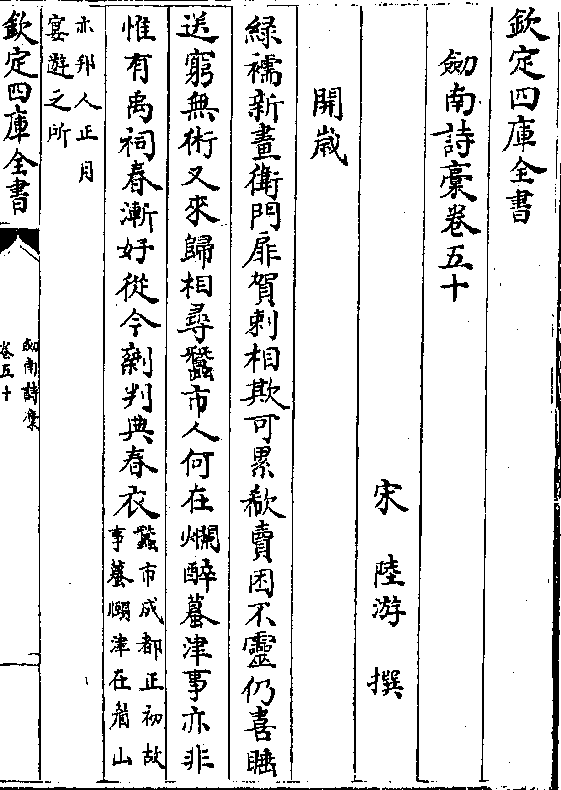 欽定四庫全書
劒南詩稾卷五十
宋 陸游 撰
開嵗
綠襦新畫衛門扉賀刺相欺可累欷賣困不靈仍喜睡
送窮無術又來歸相尋蠶市人何在爛醉蟇津事亦非
惟有禹祠春漸好從今剰判典春衣
蠶市成都正初故
事蟇頥津在眉山
亦邦人正月
宴遊之所
欽定四庫全書
劒南詩稾
卷五十